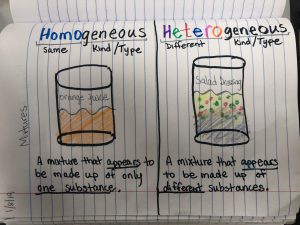 Homogeneous
Same Kind/Type
Orange Juice
A mixture that appears to
be made up of only
one substance.
Heterogeneous
Different Kind/Type
Salad Dressing
A mixture that appears
to be made up of
different substances.
Mixtures
1/8/19